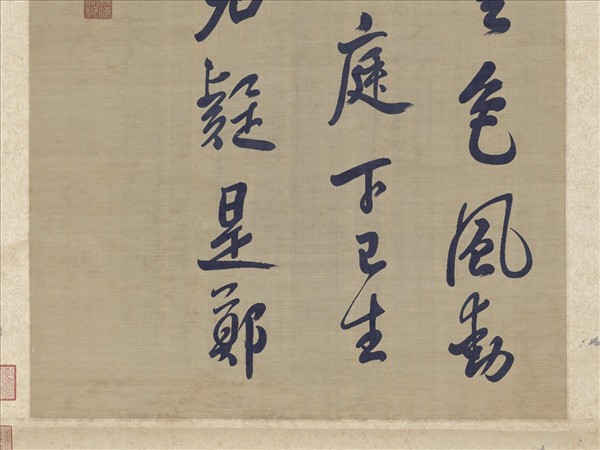 色風動
庭下已生
疑是鄭